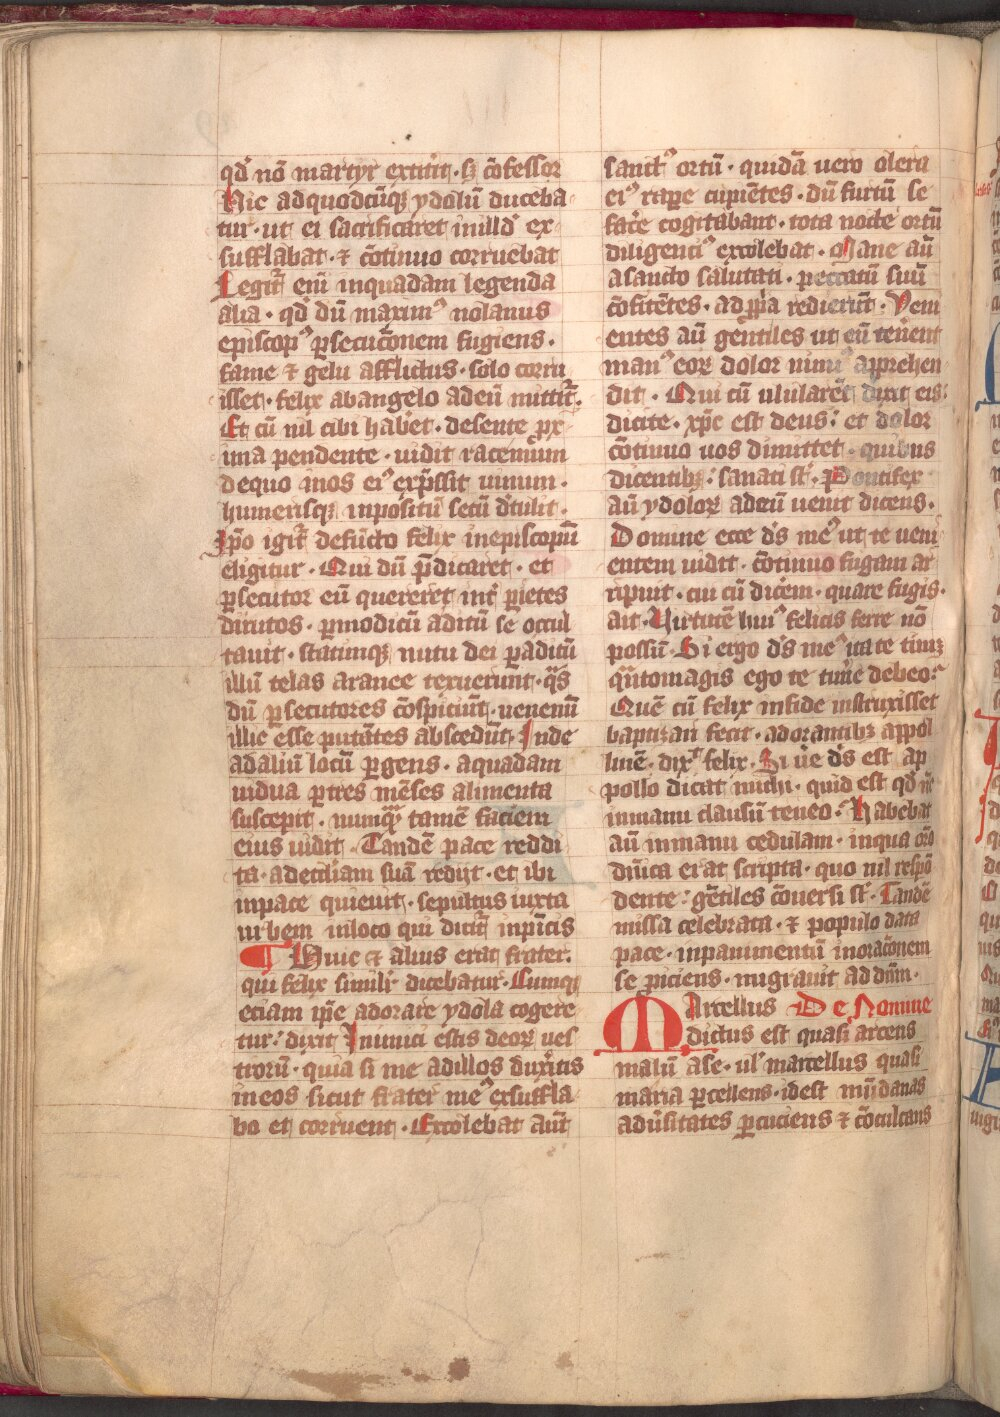 qd̉ nō martyr extitit · sꝫ cōfessor
Hic adquodcūqꝫ ydolū duceba
tur · ut ei sacrificaret inilld̉ ex
sufflabat · ⁊ cōtinuo corruebat
Legit᷑ eni̅ inquadam legenda
alia · qd̉ dū maximꝰ nolanus
episcopꝰ ꝑsecuc̄onem fugiens ·
fame ⁊ gelu afflictus · solo corru
isset · felix abangelo adeū mittit᷑ ·
Et cū nil cibi haberet · desente ꝓx
ima pendente · uidit racemum
dequo inos eiꝰ exp̄ssit uinum ·
humerisqꝫ inpositū secū detulit ·
Ip̄o igit᷑ defūcto felix inepiscopū
eligitur · Qui dū p̄dicaret · et
ꝑsecutor eū quereret int̉ parietes
dirutos · ꝑmodicū aditū se occul
tauit · statimqꝫ nutu dei ꝑaditū
illū telas aranee texuerunt · q̄s
dū ꝑsecutores cōspiciūt · nemē
illic esse putātes abscedūt · Inde
adaliū locū ꝑgens · aquadam
uidua ꝑtres mēses alimenta
suscepit · numqᷓ tamē faciem
eius uidit · Tandē pace reddi
ta · adecc̄liam suā redijt · et ibi
inpace quieuit · sepultus iuxta
urbem inloco qui dicit᷑ inpincis
¶ Huic et alius erat frater ·
qui felix similit̉ dicebatur · Cumqꝫ
eciam ip̄e adorare ydola cogere
tur · dixit Inimici estis deoꝝ ues
troruꝫ · quia si me adillos duxeritis
ineos sicut frater meꝰ exsuffla
bo et corruent · Excolebat aut̄
sanctꝰ ortū · quidā uero olera
eiꝰ rapere cupiētes · dū furtū se
facere cogitabant · tota nocte ortū
diligentiꝰ excolebat · Mane aū
asancto salutati · peccatū suū
cōfitētes · adꝓpria redierūt · Veni
entes aū gentiles ut eū tenerent
manꝰ eoꝝ dolor nimiꝰ apprehen
dit · Qui cū ulularēt dixit eis:
dicite · xp̄c est deus: et dolor
cōtinuo uos dimittet · quibus
dicentibꝫ: sanati st̄ · Pontifex
aū ydoloꝝ adeū uenit dicens ·
Domine ecce d̄s meꝰ ut te ueni
entem uidit · cōtinuo fugam ar
ripuit · cui cū dicerem · quare fugis ·
ait · Uirtutē huiꝰ felicis ferre nō
possū · Si ergo d̄s meꝰ ita te timꝫ
qn̄tomagis ego te timere debeo:
Quē cū felix infide instruxisset
baptizari fecit · adorantibꝫ appol
linē · dixᷓ felix · Si uere d̄s est ap
pollo dicat michi · quid est qd̉
inmanu clausū teneo: Habebat
aū inmanu cedulam · inqua orō
dn̄ica erat scripta · quo nil respō
dente: gētiles cōuersi st̄ · Tandē
missa celebrata · ⁊ populo data
pace · inpauimentū inorac̄onem
se ꝓiciens · migrauit ad dn̄m ·
Marcellus De Nomine
dictus est quasi arcens
malū ase · ul̉ marcellus quasi
maria ꝑcellens · idest mūdanas
aduersitates ꝑcuciens ⁊ cōculcans